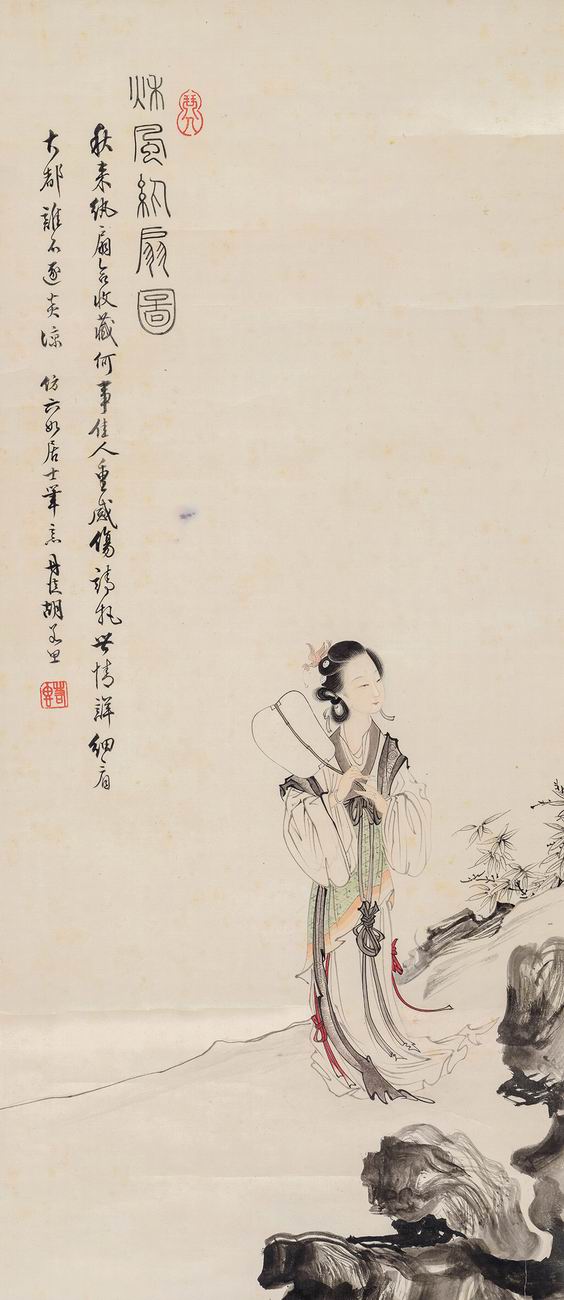 秌風紈扇圖
秋來紈扇合收藏何事佳人重感傷請把世情詳細看
大都誰不逐炎涼 仿六如居士筆意 胡若思